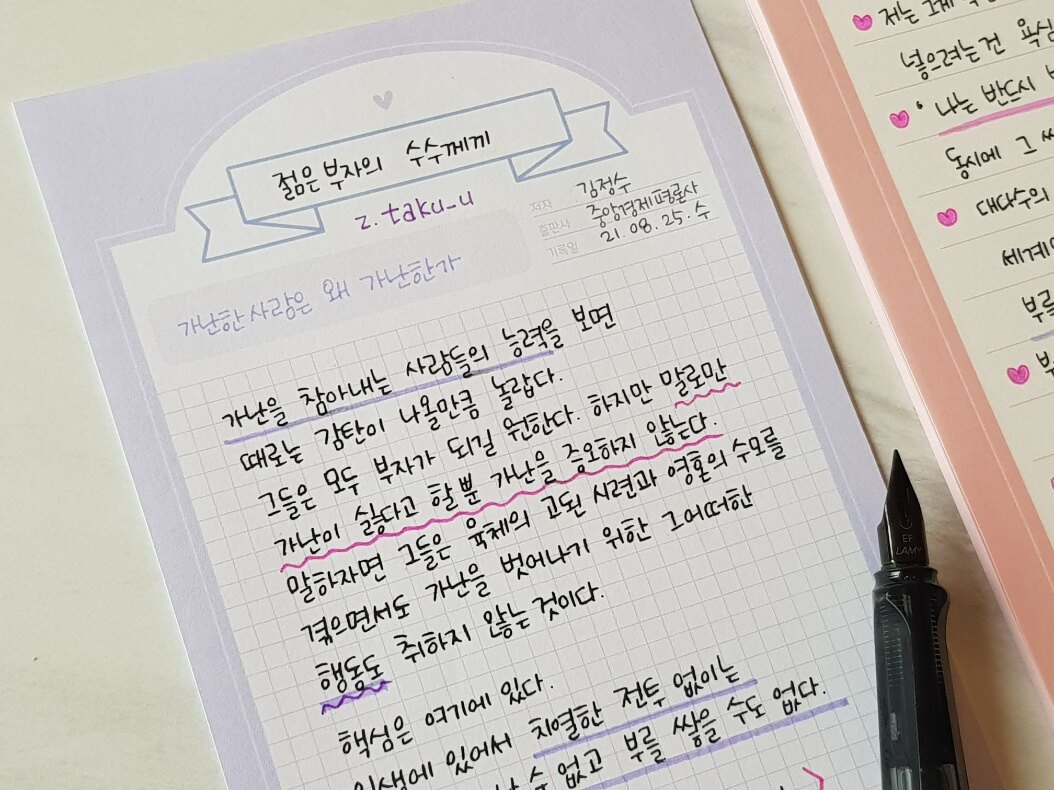 젊은 부자의 수수께끼
z.taku_u
저자 김정수
출판사 중앙경제평론사
기록일 21.08.25.수
가난한 사람은 왜 가난한가
가난을 참아내는 사람들의 능력을 보면
때로는 감탄이 나올만큼 놀랍다.
그들은 모두 부자가 되길 원한다. 하지만 말로만
가난이 싫다고 할 뿐 가난을 증오하지 않는다.
말하자면 그들은 육체의 고된 시련과 영혼의 수모를
겪으면서도 가난을 벗어나기 위한 그어떠한
행동도 취하지 않는 것이다.
핵심은 여기에 있다.
인생에 있어서 치열한 전투 없이는
수 없고 부를 쌓을 수도 없다.
저는 그게
넣으려는건 욕심
나는 반드시
동시에 그
대다수의
부를
EF
LAMY